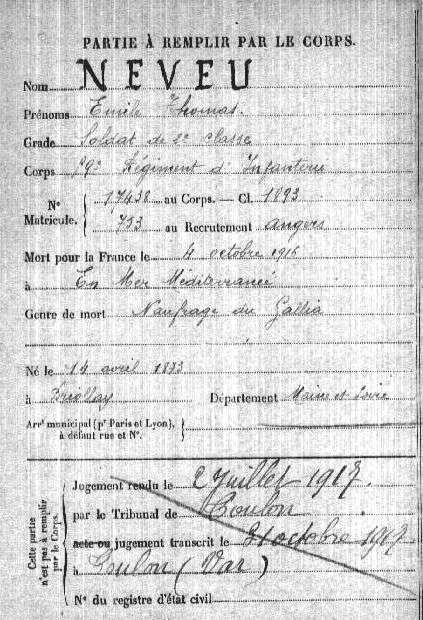 PARTIE À REMPLIR PAR LE CORPS.
Nom NEVEU
Prénoms Emile Thomas.
Grade Soldat de 2e classe
Corps Régiment d'Infanterie
N° Matricule. { 17438 au Corps. — Cl. 1893
753 au Recrutement Angers
Mort pour la France le 4 octobre 1916
à En Mer Méditerranée
Genre de mort Naufrage du Gallia
Né le 14 avril 1873
à Briollay Département Maine et Loire
Arrt municipal (pr Paris et Lyon), à défaut rue et N°. }
Cette partie n'est pas à remplir par le Corps.
Jugement rendu le 2 Juillet 1917.
par le Tribunal de Toulon.
acte ou jugement transcrit le 31 octobre 1917
à Toulon (Var)
N° du registre d'état civil